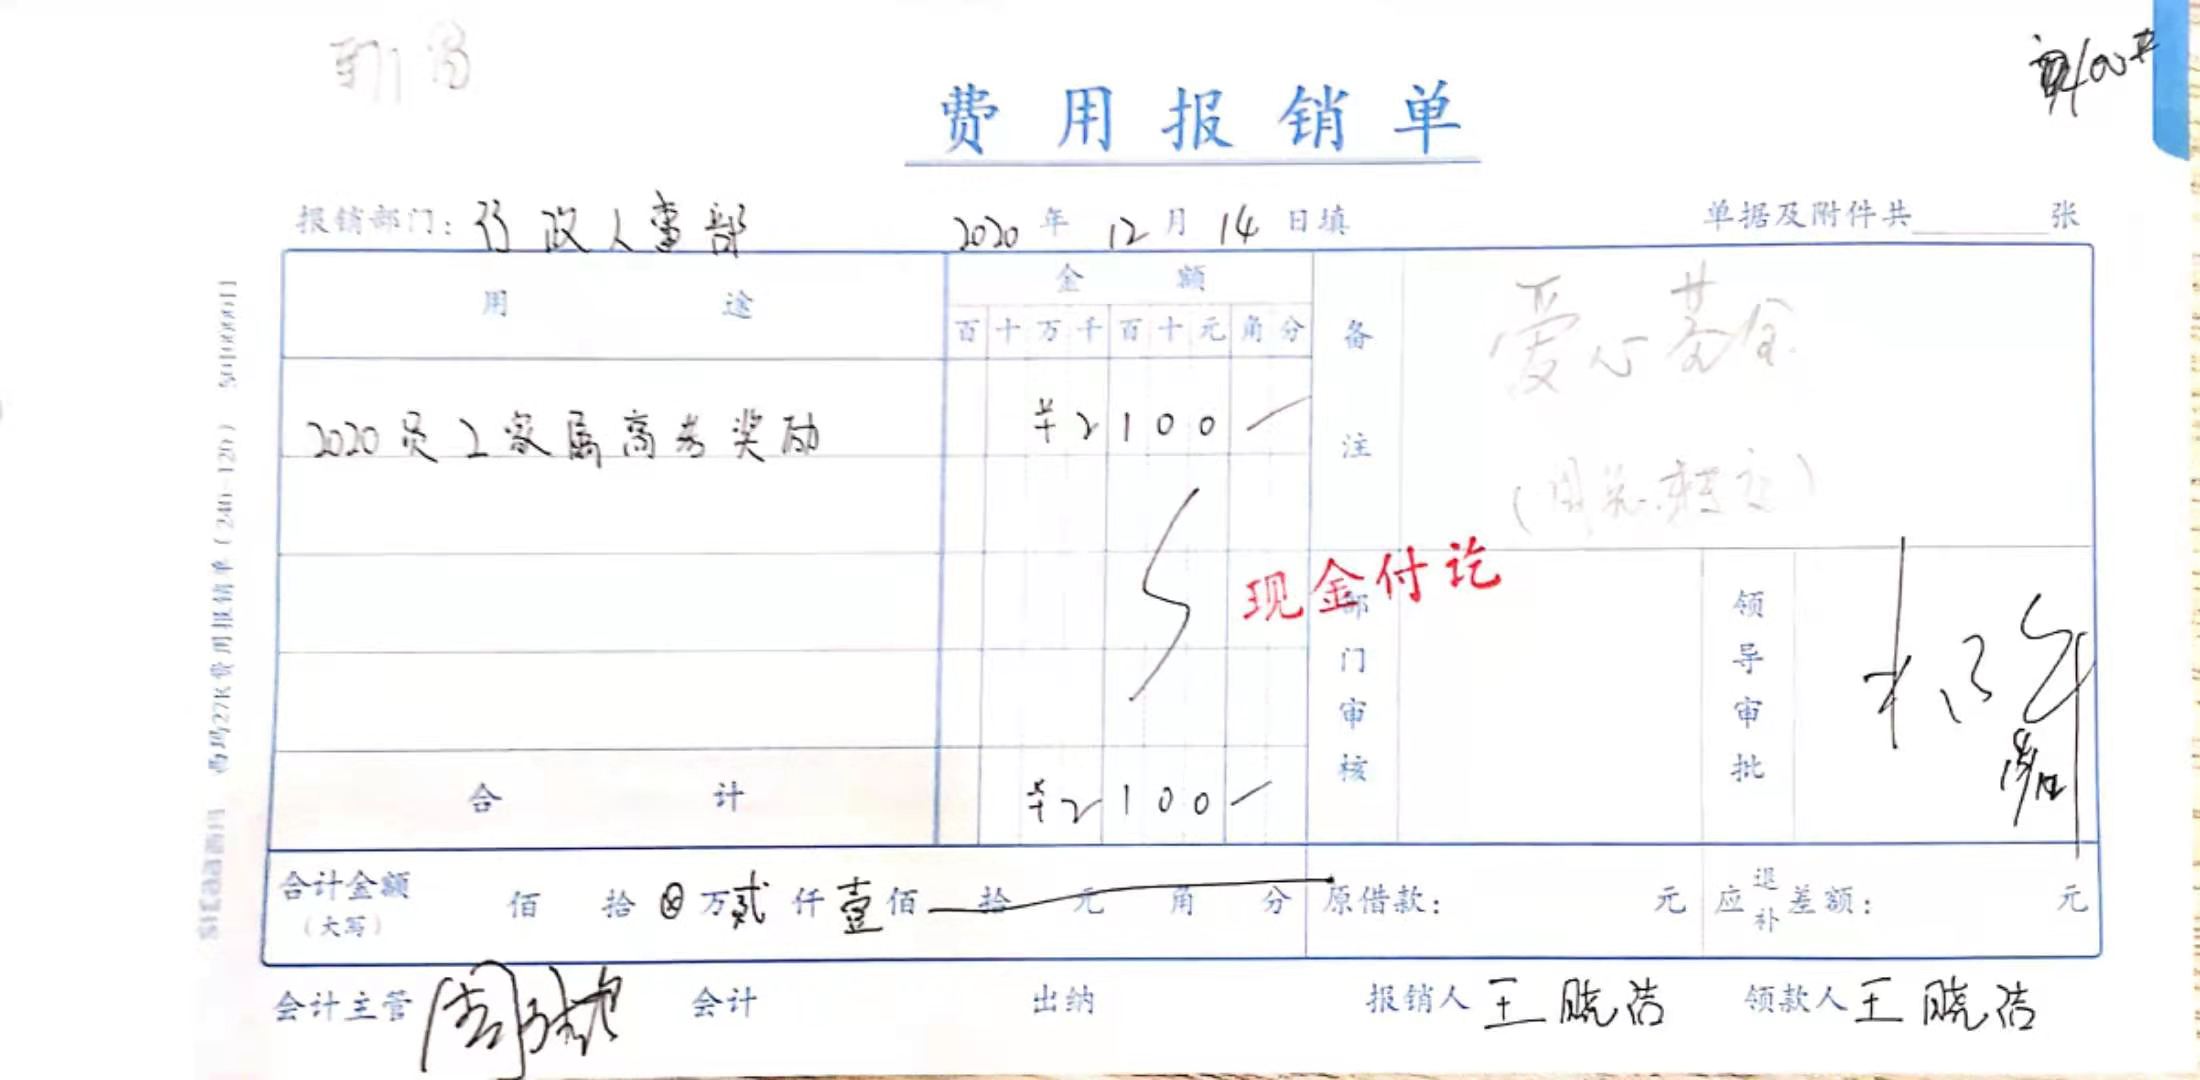 费用报销单
报销部门：行政人事部 2020年12月14日填 单据及附件共 张
用途 金额 备注 爱心基金
百十万千百十元角分
2020员工家属高考奖励 ¥2100
现金付讫
部门审核 领导审批
合计 ¥2100
合计金额（大写） 佰 拾 ⊗万贰仟壹佰 拾 元 角 分 原借款： 元 应退补差额： 元
会计主管 会计 出纳 报销人 王晓洁 领款人 王晓洁
西玛27K费用报销单（240-120）